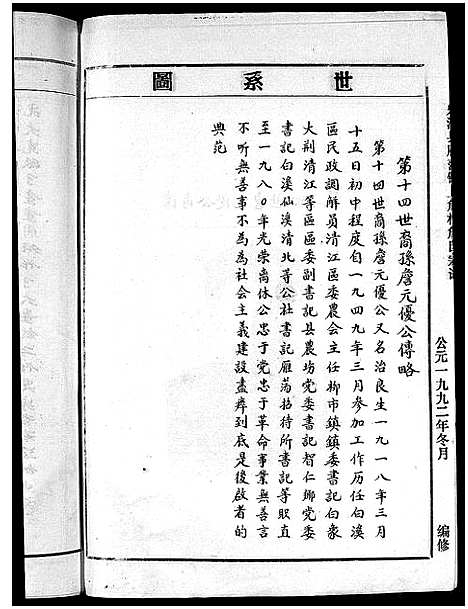 世系图
第十四世裔孫詹元優公傳略
第十四世裔孫詹元優公又名治良生一九一八年三月
十五日初中程度自一九四九年三月參加工作历任白溪
區民政調解員清江區委農会主任柳市鎮鎮委書記白象
大荆清江等區區委副書記县農坊党委書記智仁鄉党委
書記白溪仙溪清北等公社書記雁荡招待所書記等职直
至一九八〇年光荣离休公忠于党忠于革命事業無善言
不听無善事不為為社会主義建設盡瘁到底是後啟者的
典范
公元一九九二年冬月
編修